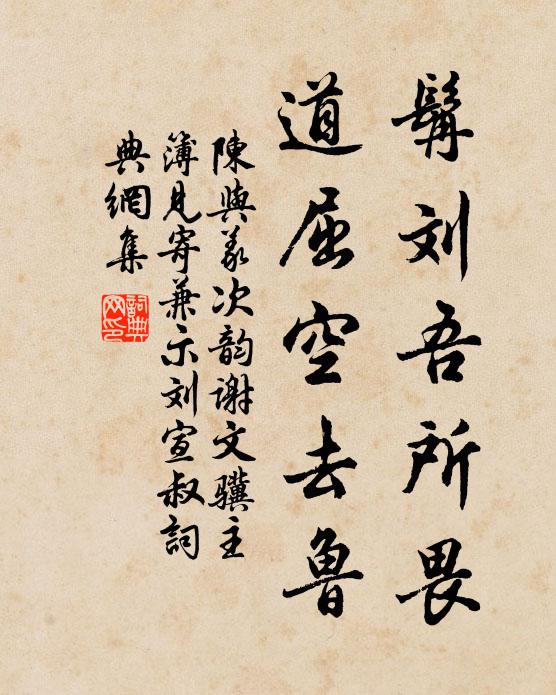 髯刘吾所畏
道屈空去魯
陳與義次韵谢文驥主
簿見寄兼示刘宣叔詞
典網集
詞典
网印